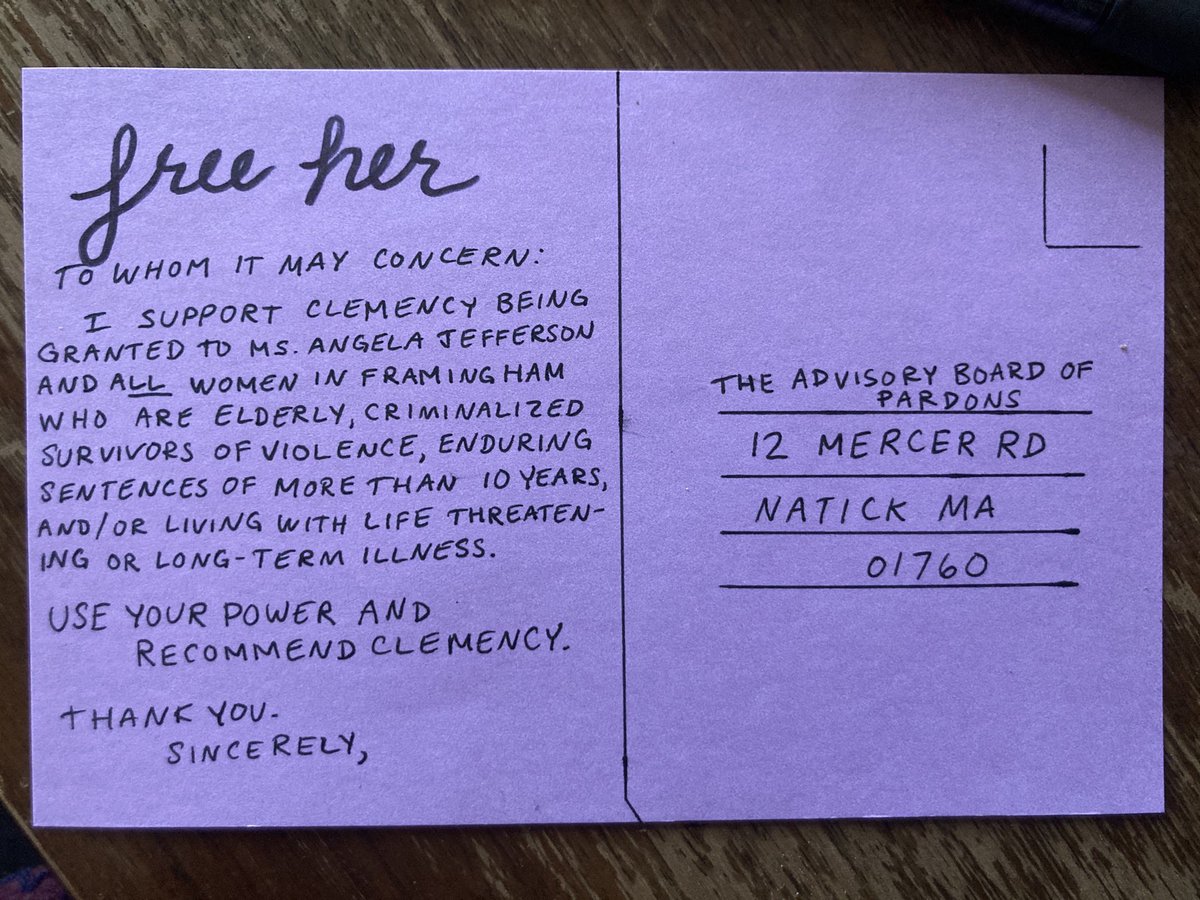 free her
TO WHOM IT MAY CONCERN:
I SUPPORT CLEMENCY BEING
GRANTED TO MS. ANGELA JEFFERSON
AND ALL WOMEN IN FRAMINGHAM
WHO ARE ELDERLY, CRIMINALIZED
SURVIVORS OF VIOLENCE, ENDURING
SENTENCES OF MORE THAN 10 YEARS,
AND/OR LIVING WITH LIFE THREATEN-
ING OR LONG-TERM ILLNESS.
USE YOUR POWER AND
RECOMMEND CLEMENCY.
THANK YOU.
SINCERELY,
THE ADVISORY BOARD OF
PARDONS
12 MERCER RD
NATICK MA
01760